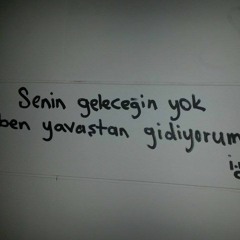 Senin geleceğin yok
ben yavaştan gidiyorum